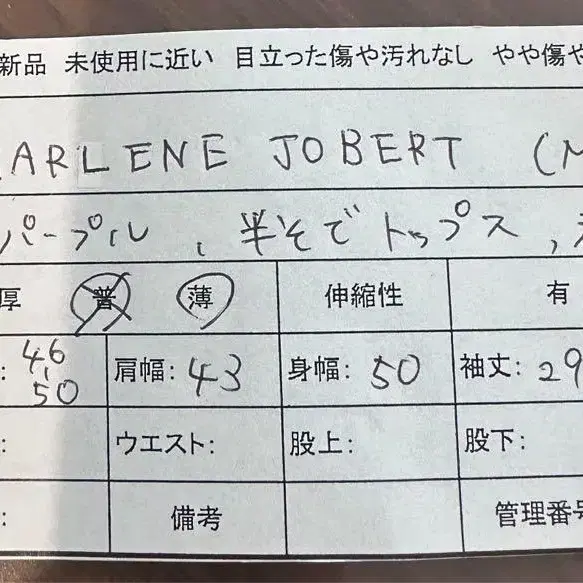 新品 未使用に近い 目立った傷や汚れなし やや傷や
ARLENE JOBERT (M
パープル、半そでトップス、
厚 普 薄 伸縮性 有
: 46, 50 肩幅: 43 身幅: 50 袖丈: 29
: ウエスト: 股上: 股下:
: 備考 管理番号